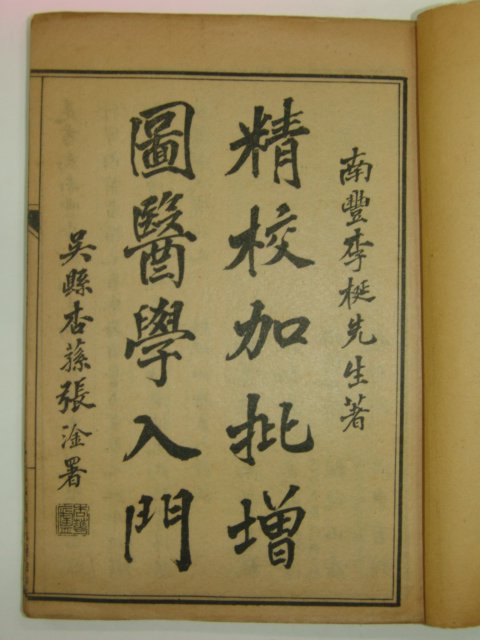 南豐李梴先生著
精校加批增
圖醫學入門
吳縣杏蓀張淦署